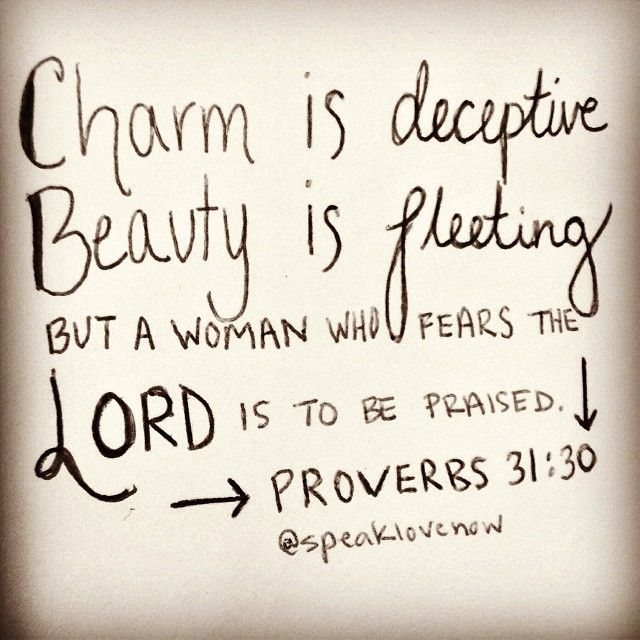 Charm is deceptive
Beauty is fleeting
BUT A WOMAN WHO FEARS THE
LORD IS TO BE PRAISED.
PROVERBS 31:30
@speaklovenow